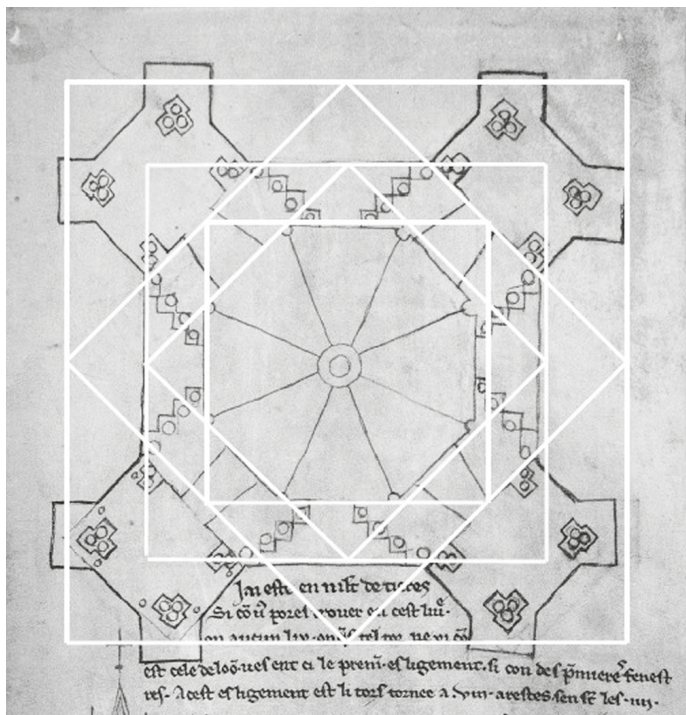 Jai este en mlt de tieres
Si cō ū porez trouer en cest liu̾.
en aucun liu onq̄s tel tor ne vi cō
est cele de loō. ues ent ci le premī. esligement. si con des p̄miere̾s fenest
res. A cest esligement est li tors tornee a .viii. arestes. sen st̄ les .iiii.